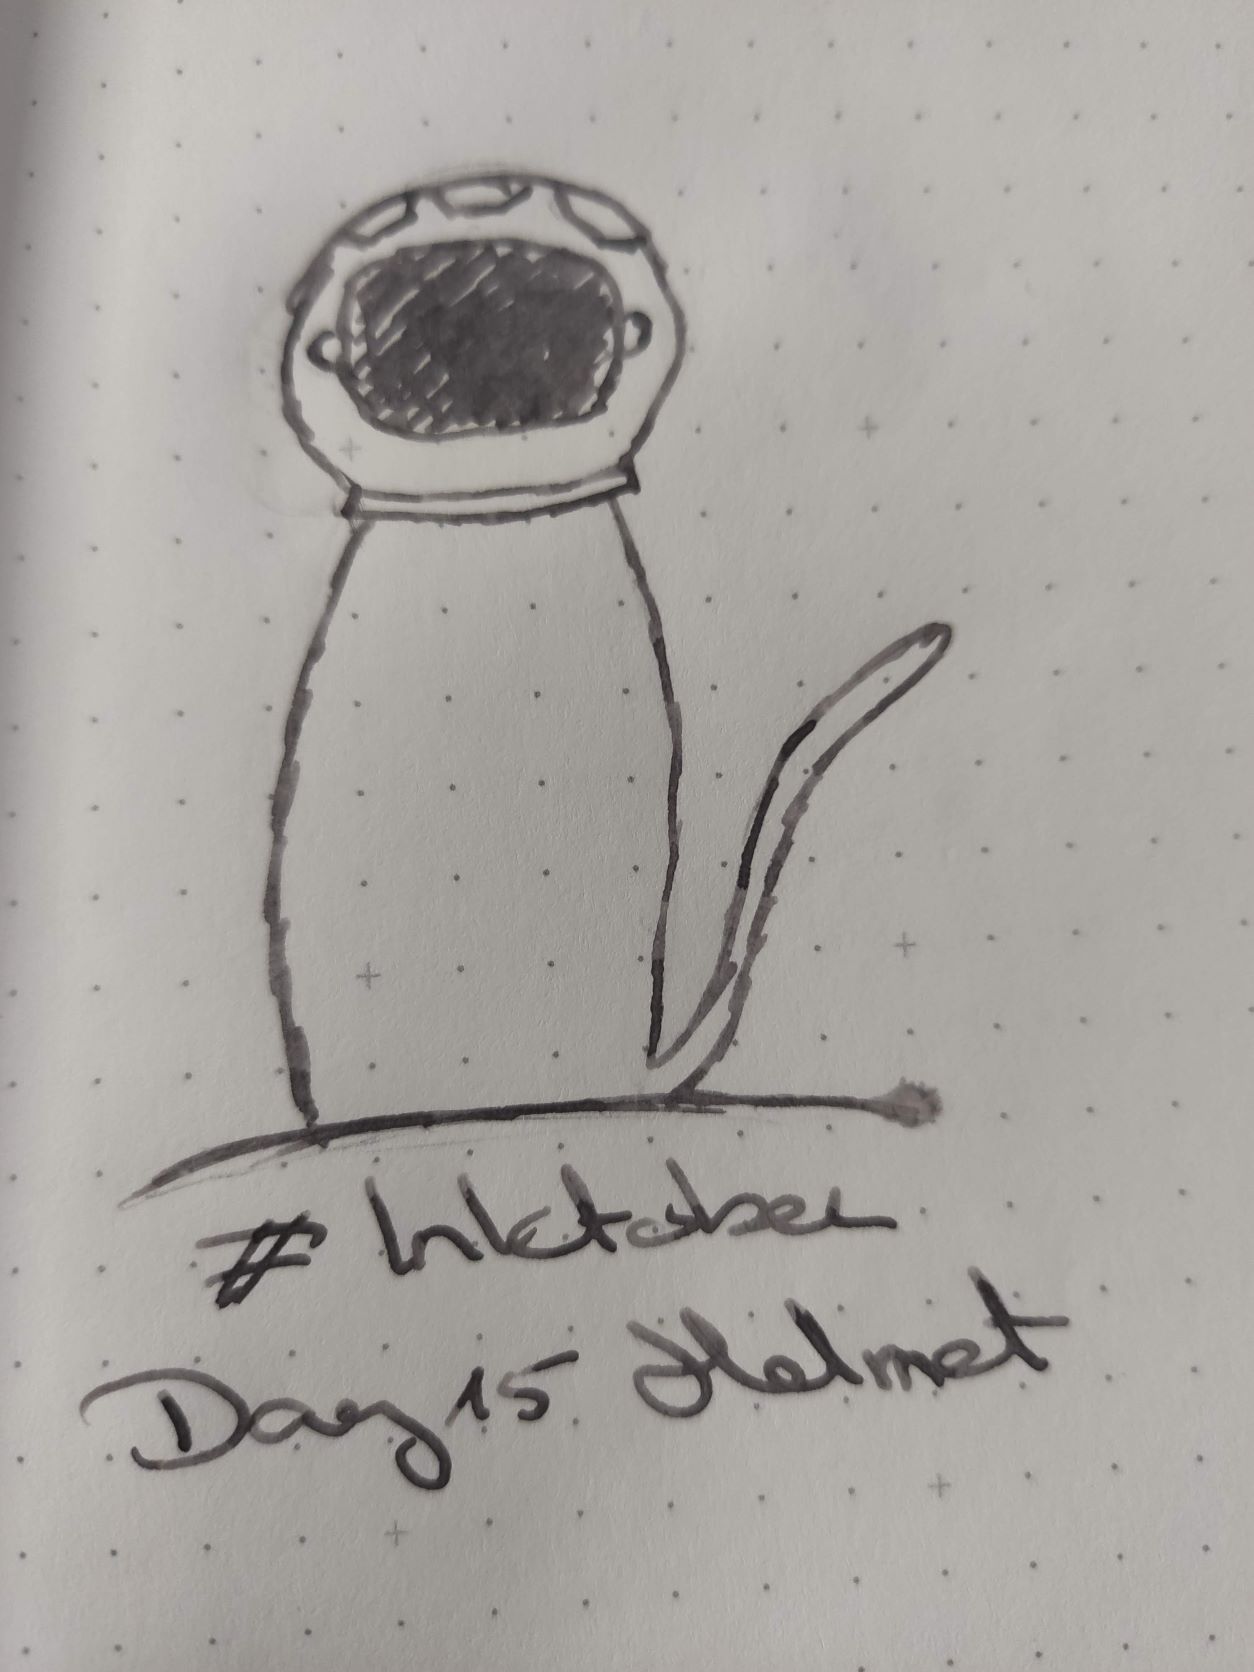 # Inktober
Day 15 Helmet